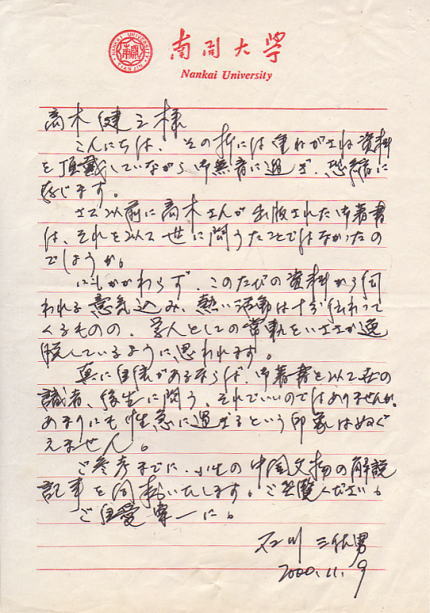 南開大學
Nankai University
高木健之様
こんにちは、その折には重ねがさね資料
を頂戴していながら御無音に過ぎ、恐縮に
存じます。
さて以前に高木さんが出版された御著書
は、それを以て世に問うたことではなかったの
でしょうか。
にもかかわらず、このたびの資料から伺
われる意気込み、熱い活動は十分伝わって
くるものの、学人としての常軌をいささか逸
脱しているように思われます。
真に自信があるならば、御著書を以て在の
識者、後生に問う、それでいいのではありませんか。
あまりにも性急に過ぎるという印象はぬぐ
えません。
ご参考までに、小生の中国文物の解説
記事を同封いたします。ご笑覧ください。
ご自愛専一に。
石川三佐男
2000.11.9